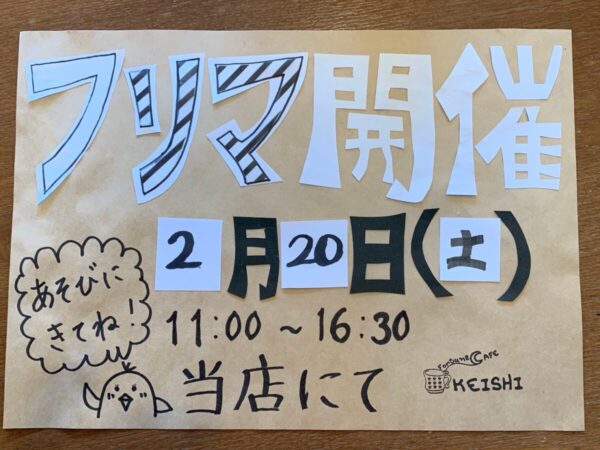 フリマ開催
2月20日(土)
あそびに
きてね!
11:00～16:30
当店にて
Fortune CAFE
KEISHI